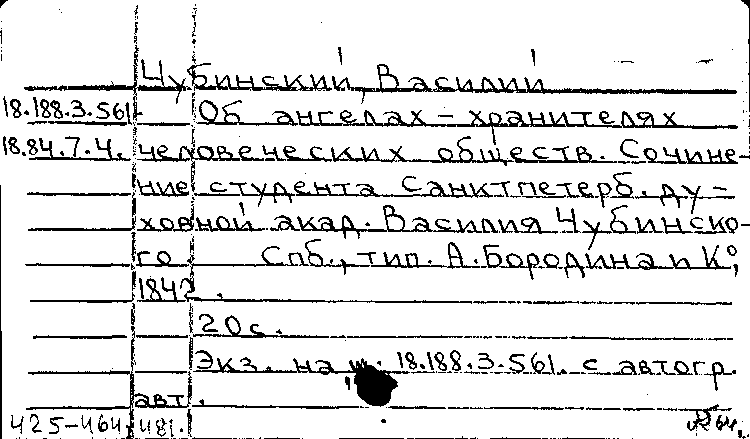 Чубинский, Василий
18.188.3.561. Об ангелах-хранителях
18.84.7.4. человеческих обществ. Сочине-
ние студента Санктпетерб. ду-
ховной акад. Василия Чубинско-
го. Спб., тип. А. Бородина и К°,
1842.
20с.
Экз. на ш. 18.188.3.561. с автогр.
авт.
425-464, 481.